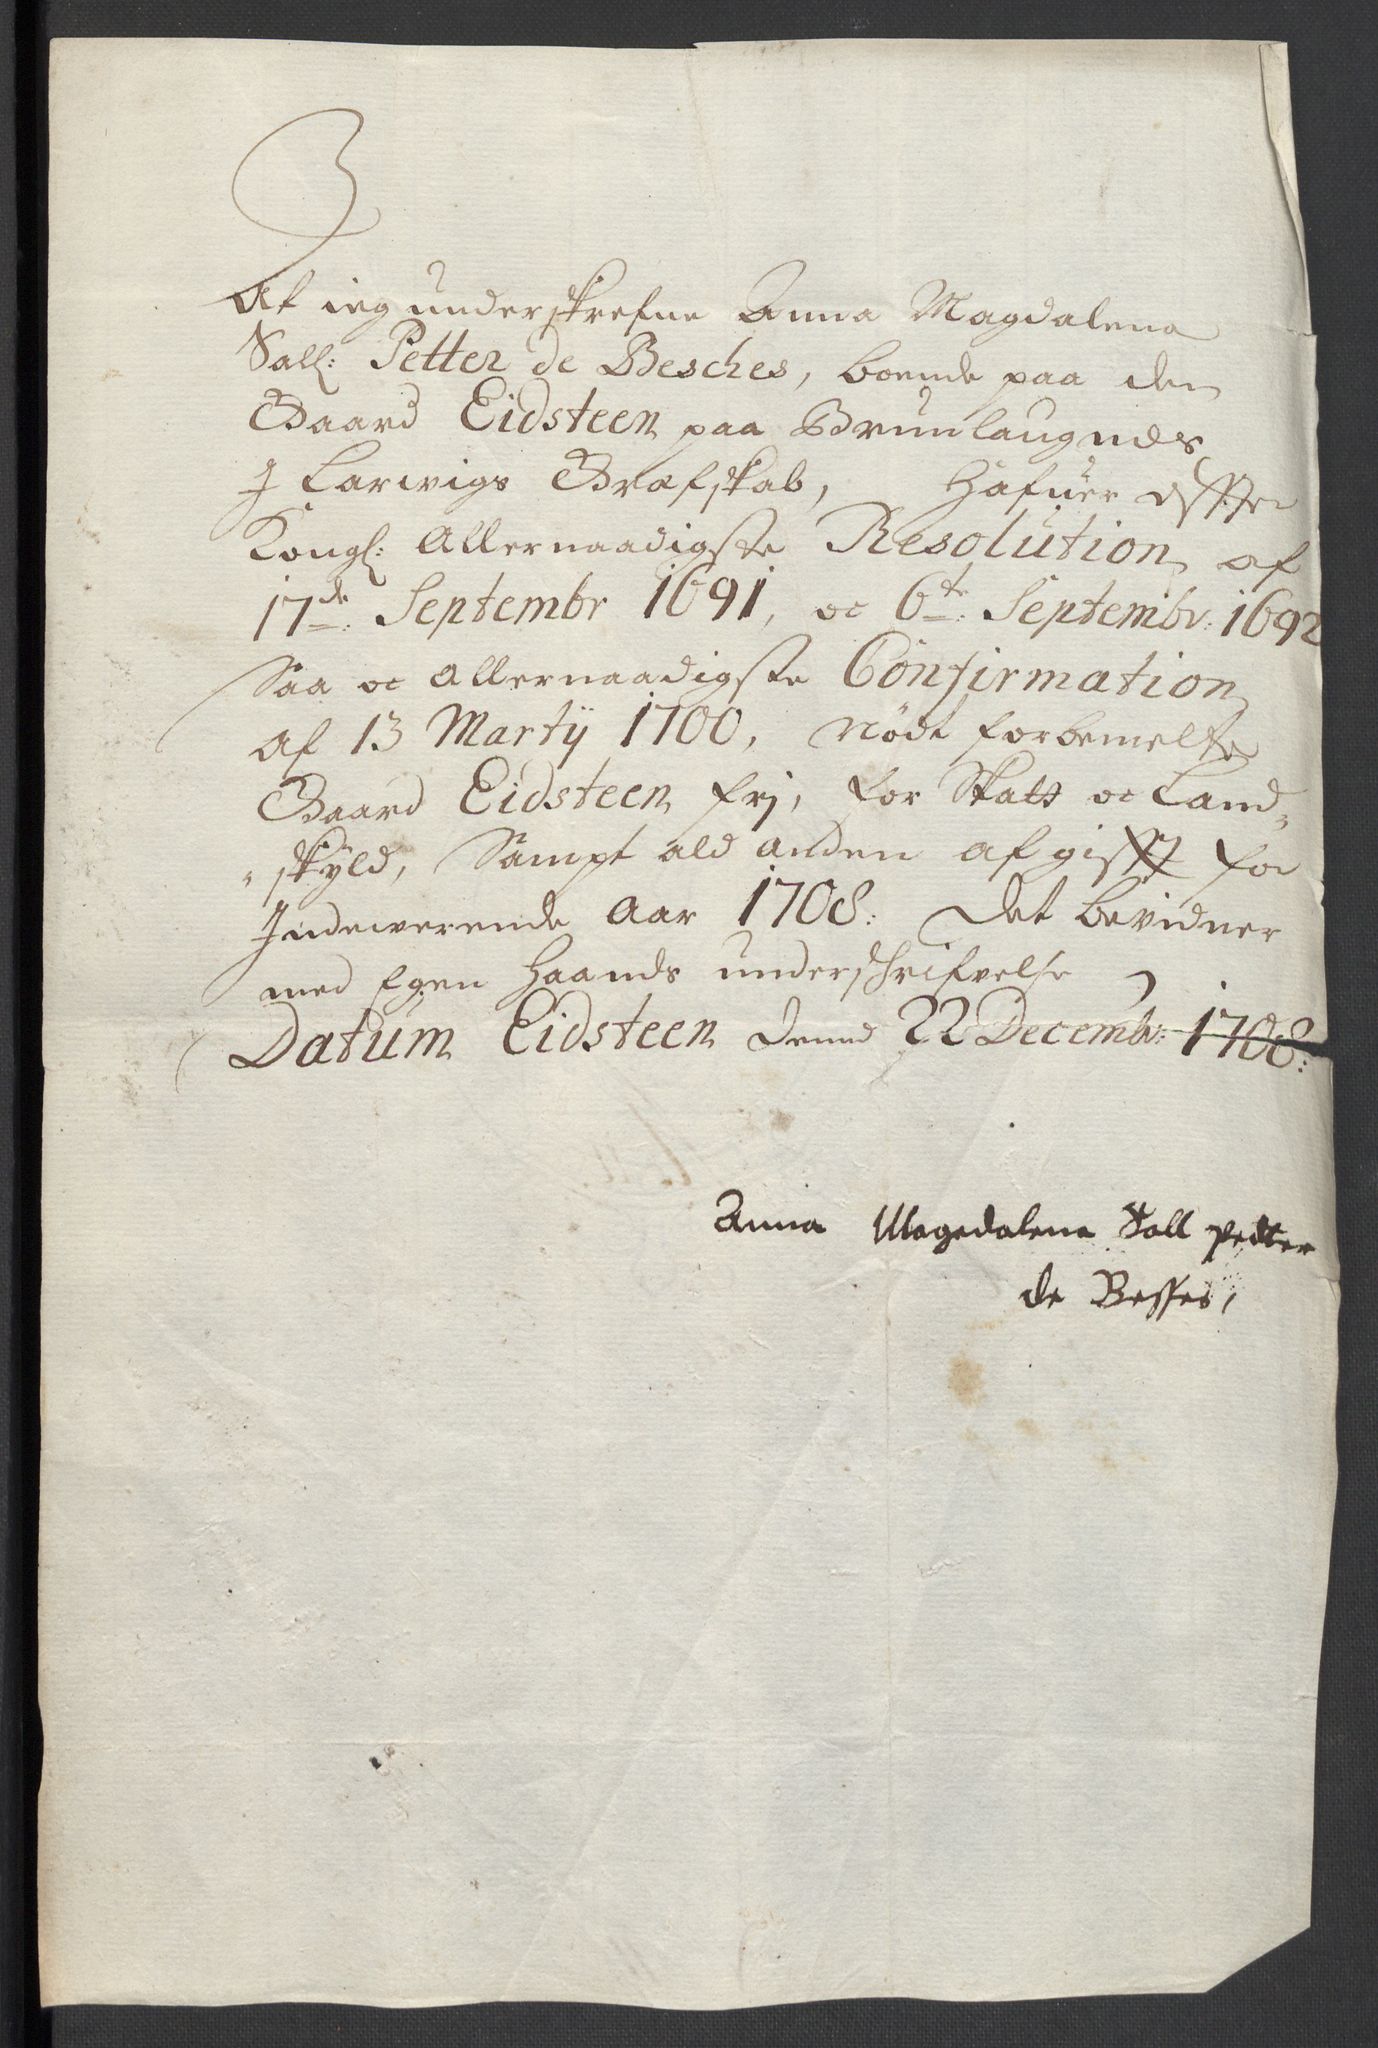 At ieg underskrefne Anna Magdalena
Sall: Petter de Besches, boende paa den
Gaard Eidsteen paa Brunlaugnæs
J Larwigs Grefskab, Hafuer effter
Kongl: Allernaadigste Resolution af
17de: Septembr 1691, oc 6te: Septembr: 1692
Saa oc allernaadigste Confirmation
af 13 Martij 1700, nødt forbemelte
Gaard Eidsteen frj, for Skatt oc Land„
„skyld, Sampt ald anden afgifft for
Indewerende Aar 1708: Det bevidner
med Egen Haands underschrifvelse
Datum Eidsteen denné 22 Decembr: 1708:
Anna Magedalena Sall pedter
de Besses,